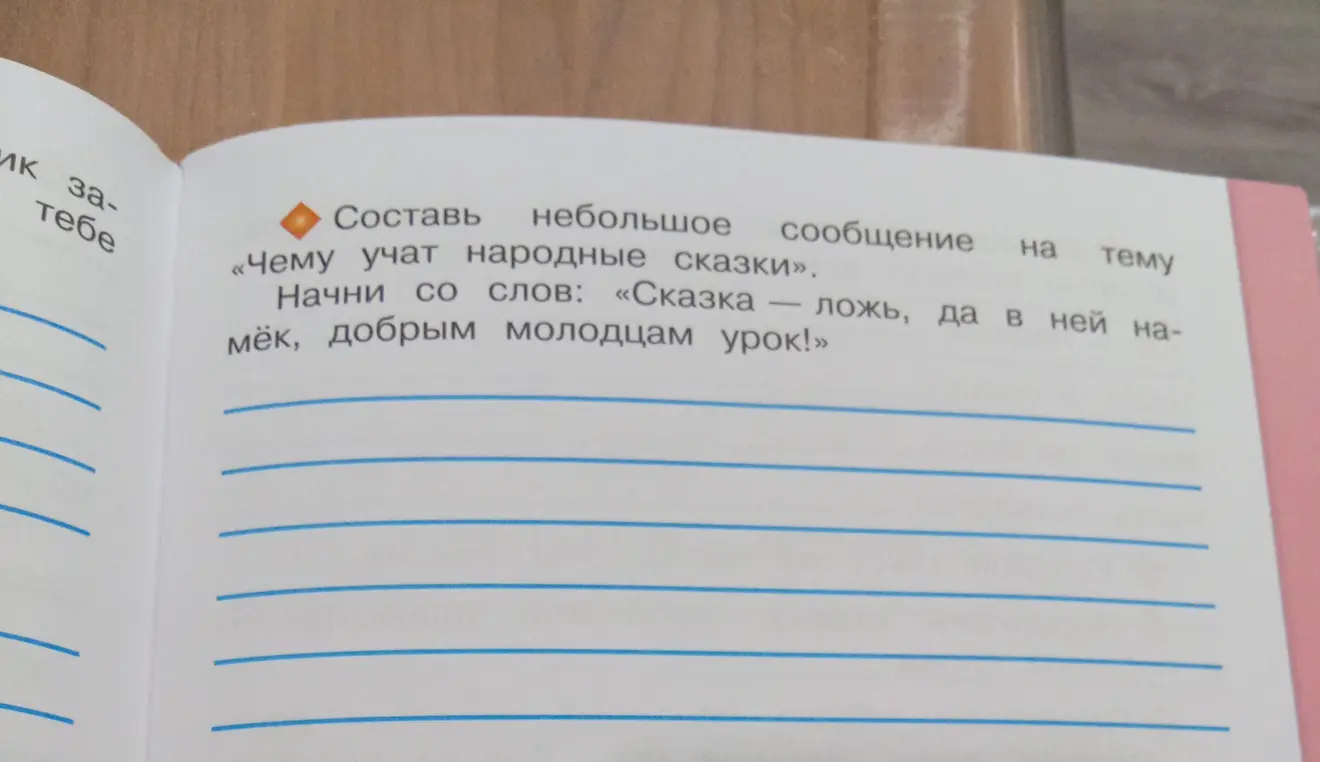 ик за-
тебе
Составь небольшое сообщение на тему
«Чему учат народные сказки».
Начни со слов: «Сказка — ложь, да в ней на-
мёк, добрым молодцам урок!»